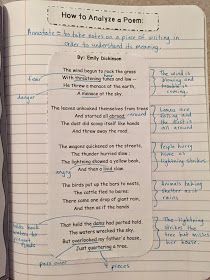 How to Analyze a Poem:
Annotate = to take notes on a piece of writing in
order to understand its meaning.
By: Emily Dickinson
The wind begun to rock the grass
With threatening tunes and low –
He threw a menace at the earth,
A menace at the sky.
fear
danger
The wind is
blowing and
trouble's
coming
The leaves unhooked themselves from trees
And started all abroad;
The dust did scoop itself like hands
And threw away the road.
around
Leaves are
falling and
the dust is
all around
The wagons quickened on the streets,
The thunder hurried slow;
The lightning showed a yellow beak,
And then a livid claw.
angry
People hurry
home as
lightning strikes
The birds put up the bars to nests,
The cattle fled to barns;
There came one drop of giant rain,
And then as if the hands
Animals taking
shelter as it
rains
That held the dams had parted hold,
The waters wrecked the sky,
But overlooked my father's house,
Just quartering a tree.
The lightning
strikes the
tree but misses
her house
pass over
4 pieces